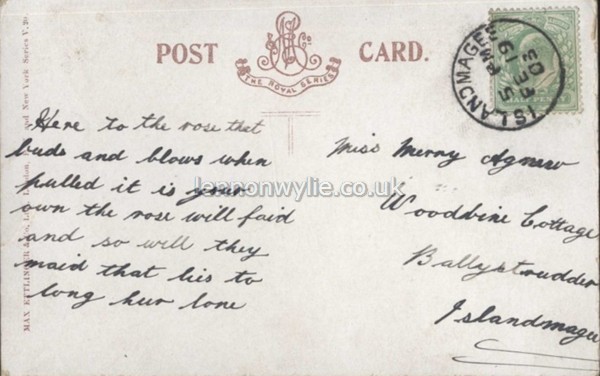 POST CARD.
THE ROYAL SERIES
ISLANDMAGEE
FE 5
03
HALF PENNY
Here to the rose that
buds and blows when
pulled it is your
own the rose will faid
and so will they
maid that lies to
long hur lone
Miss Merry Agnew
Woodbine Cottage
Ballystrudder
Islandmagee
lennonwylie.co.uk
MAX ETTLINGER & Co. London, and New York Series V.